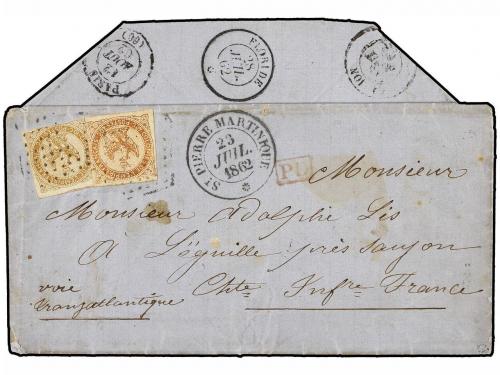 PARIS
12
AOUT
62
(60)
FLORIDE
28
JUIL
62
ION
ST PIERRE MARTINIQUE
23
JUIL.
1862
P.D.
Monsieur
Monsieur Adolphe Lis
à L'éguille près Saujon
voie Chte Infre France
transatlantique